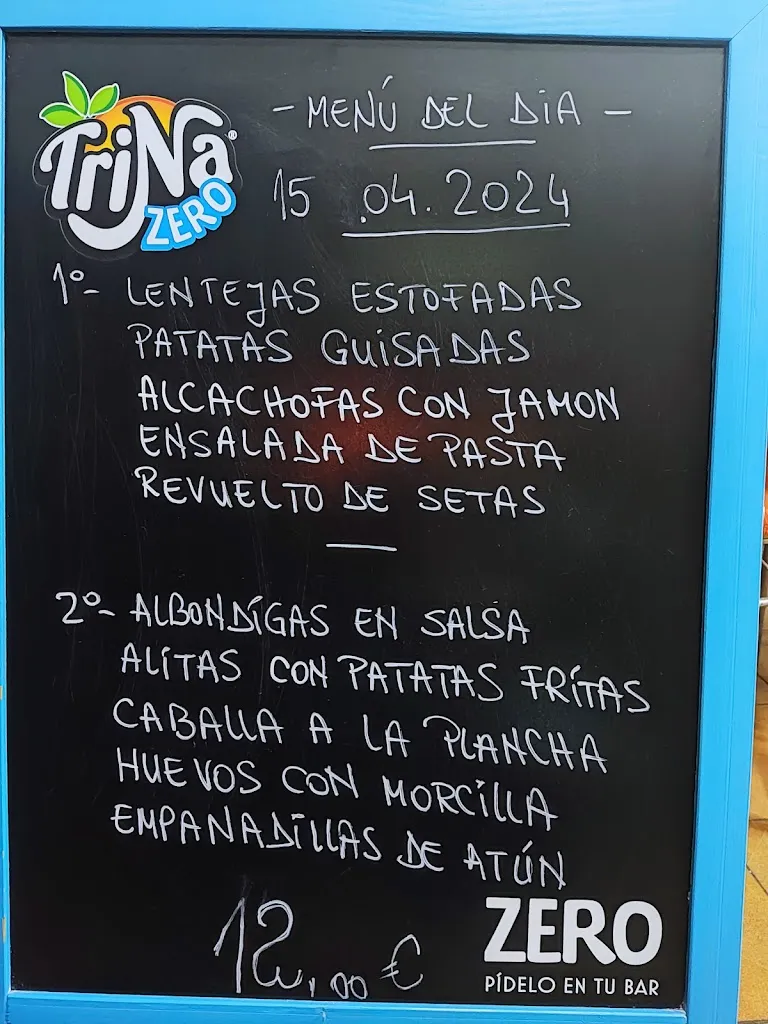 TriNa®
ZERO
- MENÚ DEL DIA -
15 .04.2024
1º- LENTEJAS ESTOFADAS
PATATAS GUISADAS
ALCACHOFAS CON JAMON
ENSALADA DE PASTA
REVUELTO DE SETAS
2º- ALBONDIGAS EN SALSA
ALITAS CON PATATAS FRITAS
CABALLA A LA PLANCHA
HUEVOS CON MORCILLA
EMPANADILLAS DE ATÚN
12,00 €
ZERO
PÍDELO EN TU BAR